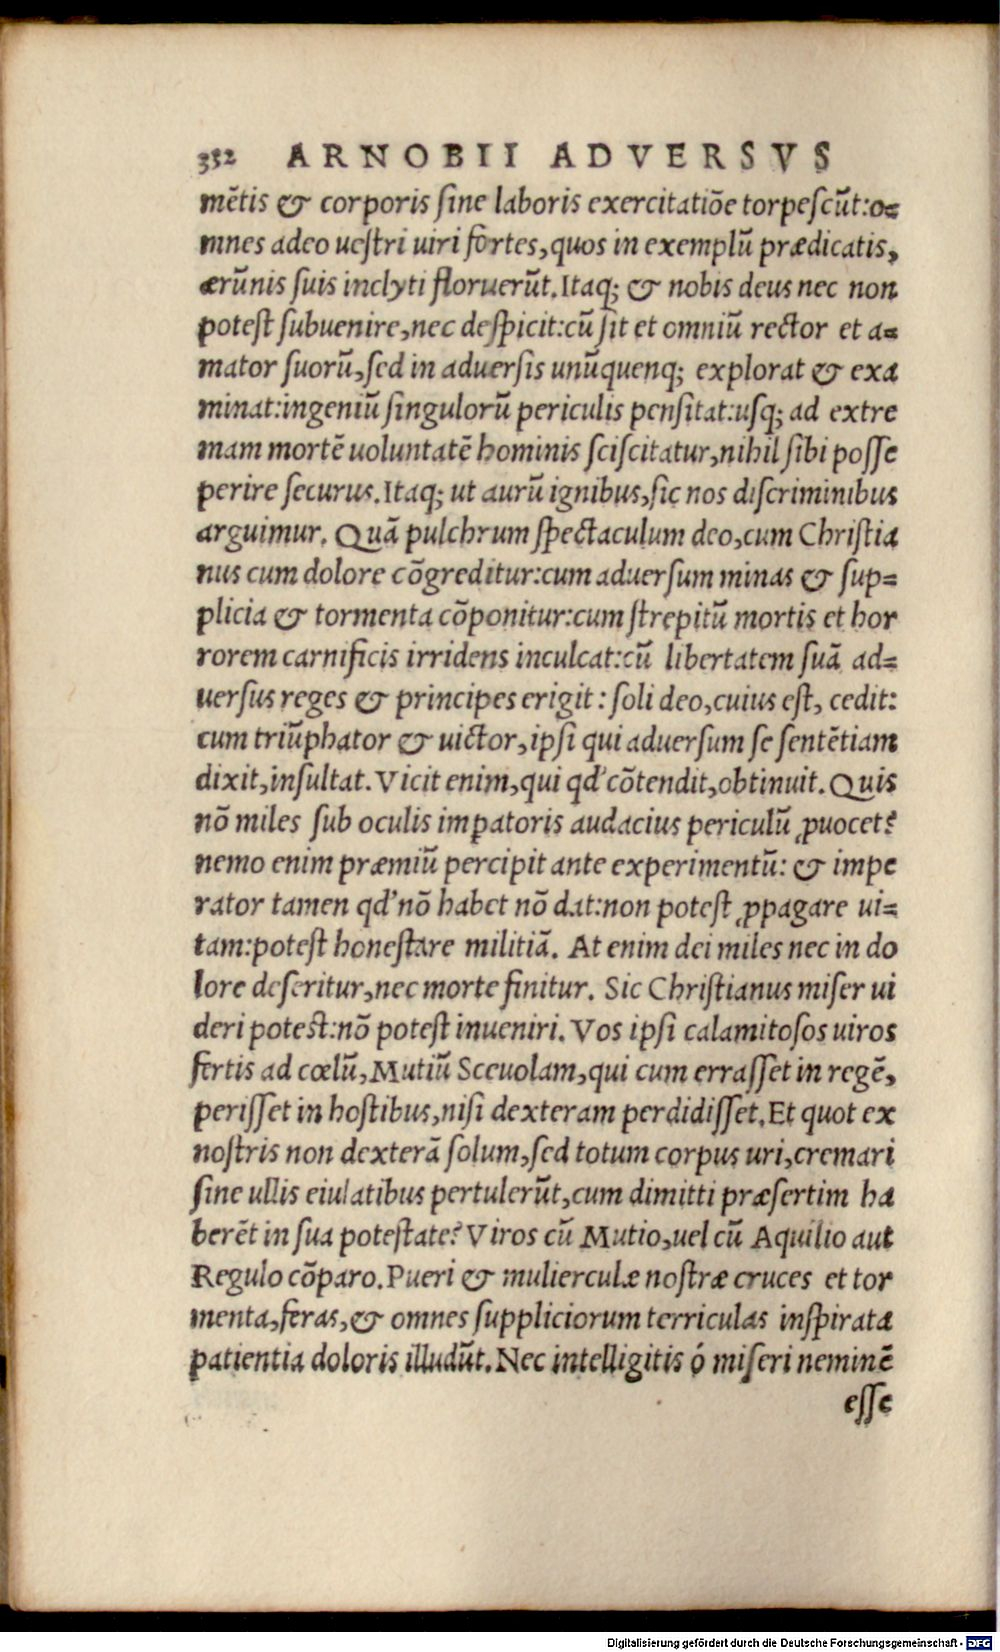 352 ARNOBII ADVERSVS
mētis & corporis sine laboris exercitatiōe torpescūt:o=
mnes adeo uestri uiri fortes,quos in exemplū prædicatis,
ærūnis suis inclyti floruerūt.Itaq; & nobis deus nec non
potest subuenire,nec despicit:cū sit et omniū rector et a=
mator suorū,sed in aduersis unūquenq; explorat & exa
minat:ingeniū singulorū periculis pensitat:usq; ad extre
mam mortē uoluntatē hominis sciscitatur,nihil sibi posse
perire securus.Itaq; ut aurū ignibus,sic nos discriminibus
arguimur. Quā pulchrum spectaculum deo,cum Christia
nus cum dolore cōgreditur:cum aduersum minas & sup=
plicia & tormenta cōponitur:cum strepitū mortis et hor
rorem carnificis irridens inculcat:cū libertatem suā ad=
uersus reges & principes erigit: soli deo,cuius est, cedit:
cum triūphator & uictor,ipsi qui aduersum se sentētiam
dixit,insultat. Vicit enim,qui qd' cōtendit,obtinuit. Quis
nō miles sub oculis impatoris audacius periculū ꝓuocet?
nemo enim præmiū percipit ante experimentū: & impe
rator tamen qd' nō habet nō dat:non potest ꝓpagare ui=
tam:potest honestare militiā. At enim dei miles nec in do
lore deseritur,nec morte finitur. Sic Christianus miser ui
deri potest:nō potest inueniri. Vos ipsi calamitosos uiros
fertis ad cœlū,Mutiū Sceuolam,qui cum errasset in regē,
perisset in hostibus,nisi dexteram perdidisset.Et quot ex
nostris non dexterā solum,sed totum corpus uri,cremari
sine ullis eiulatibus pertulerūt,cum dimitti præsertim ha
berēt in sua potestate? Viros cū Mutio,uel cū Aquilio aut
Regulo cōparo.Pueri & mulierculæ nostræ cruces et tor
menta,feras,& omnes suppliciorum terriculas inspirata
patientia doloris illudūt.Nec intelligitis ó miseri neminē
esse
Digitalisierung gefördert durch die Deutsche Forschungsgemeinschaft - DFG